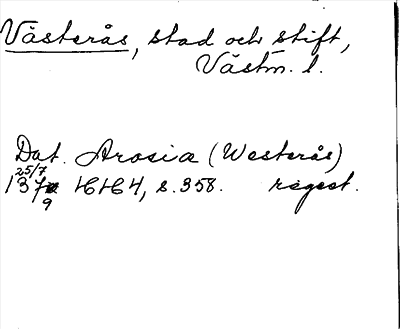 Västerås, stad och stift,
Västm. l.
Dat. Arosia (Westerås)
25/7
137 HH 4, s. 358. regest.
9